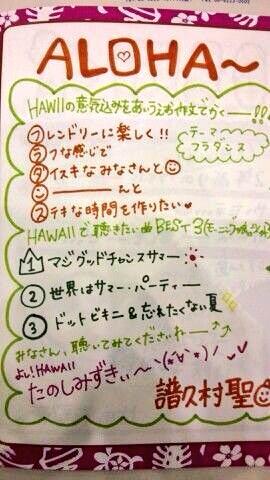 ALOHA〜
HAWIIの意気込みをあいうえお作文でかくーー!!
フレンドリーに楽しく!!
ラフな感じで
ダイスキなみなさんと
ーーーーんと
ステキな時間を作りたい♥
テーマ
フラダンス
HAWAIIで聴きたい曲BEST3(モーニング娘。
1 マジグッドチャンスサマー
② 世界はサマー・パーティー
③ ドットビキニ&忘れたくない夏
みなさん、聴いてみてくださいねー
よい!HAWAII
たのしみずきぃ〜
譜久村聖